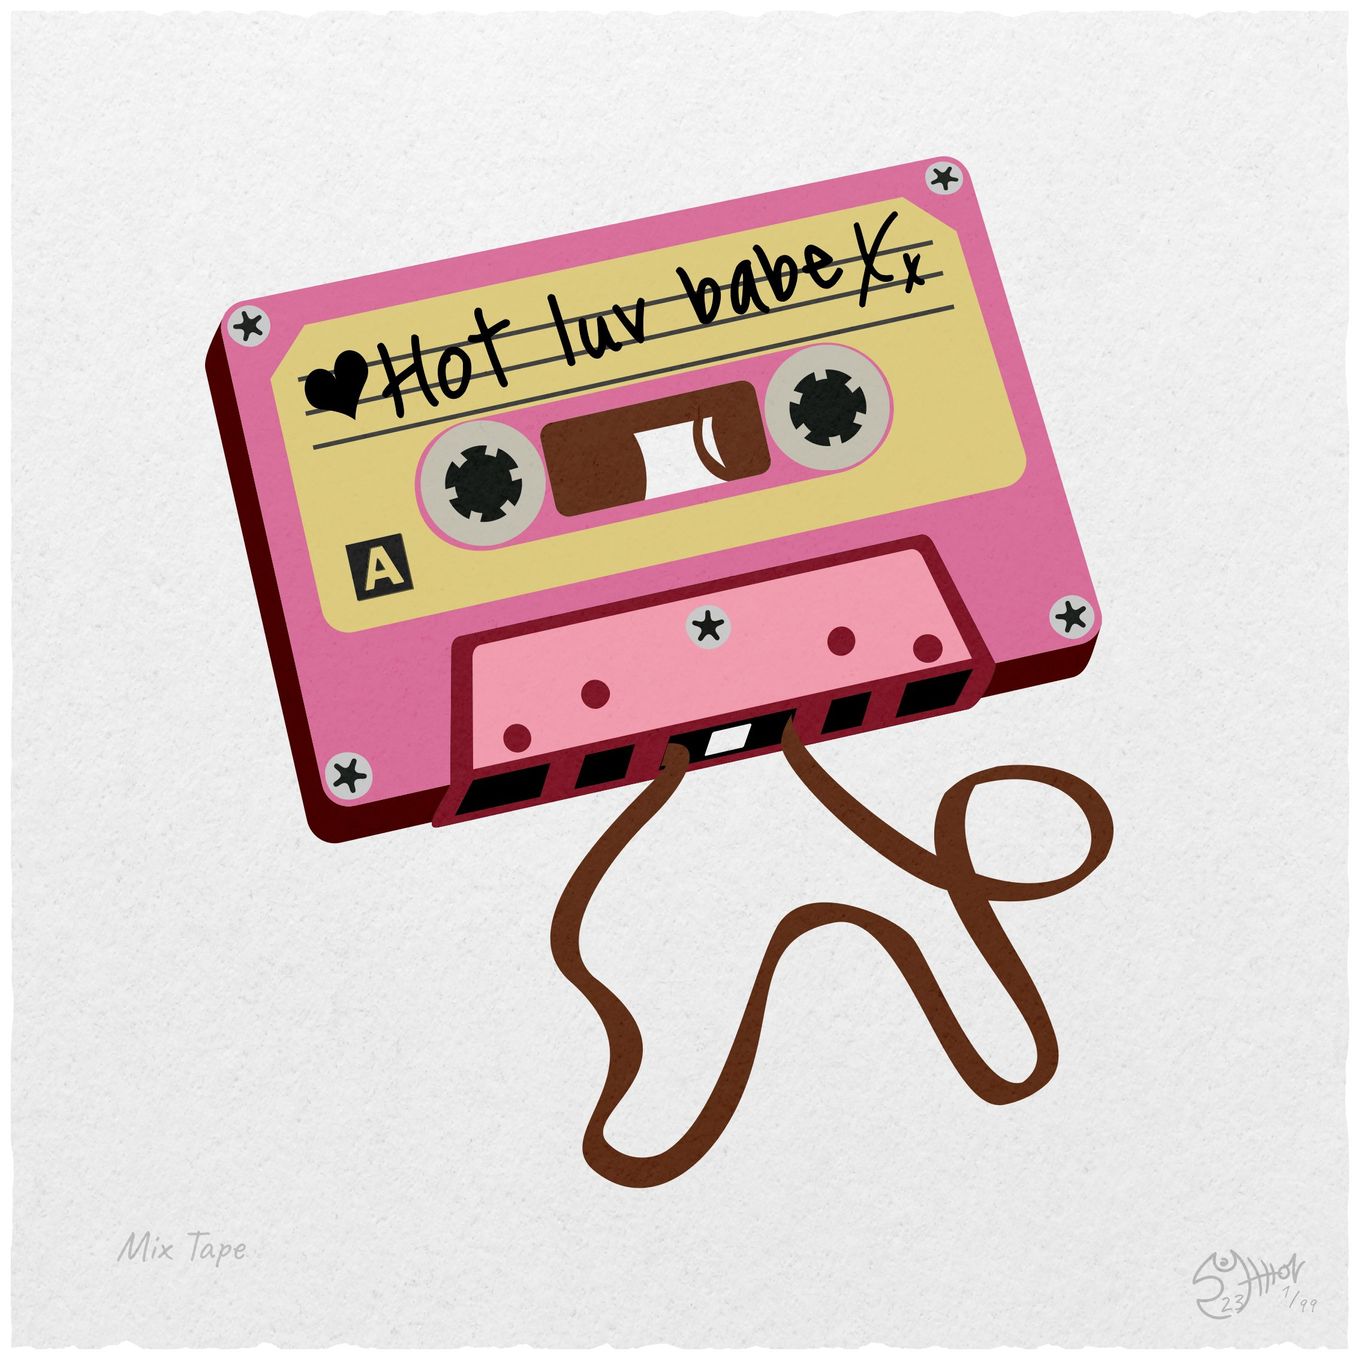 ♥Hot luv babe Xx
A
Mix Tape
23
1/99